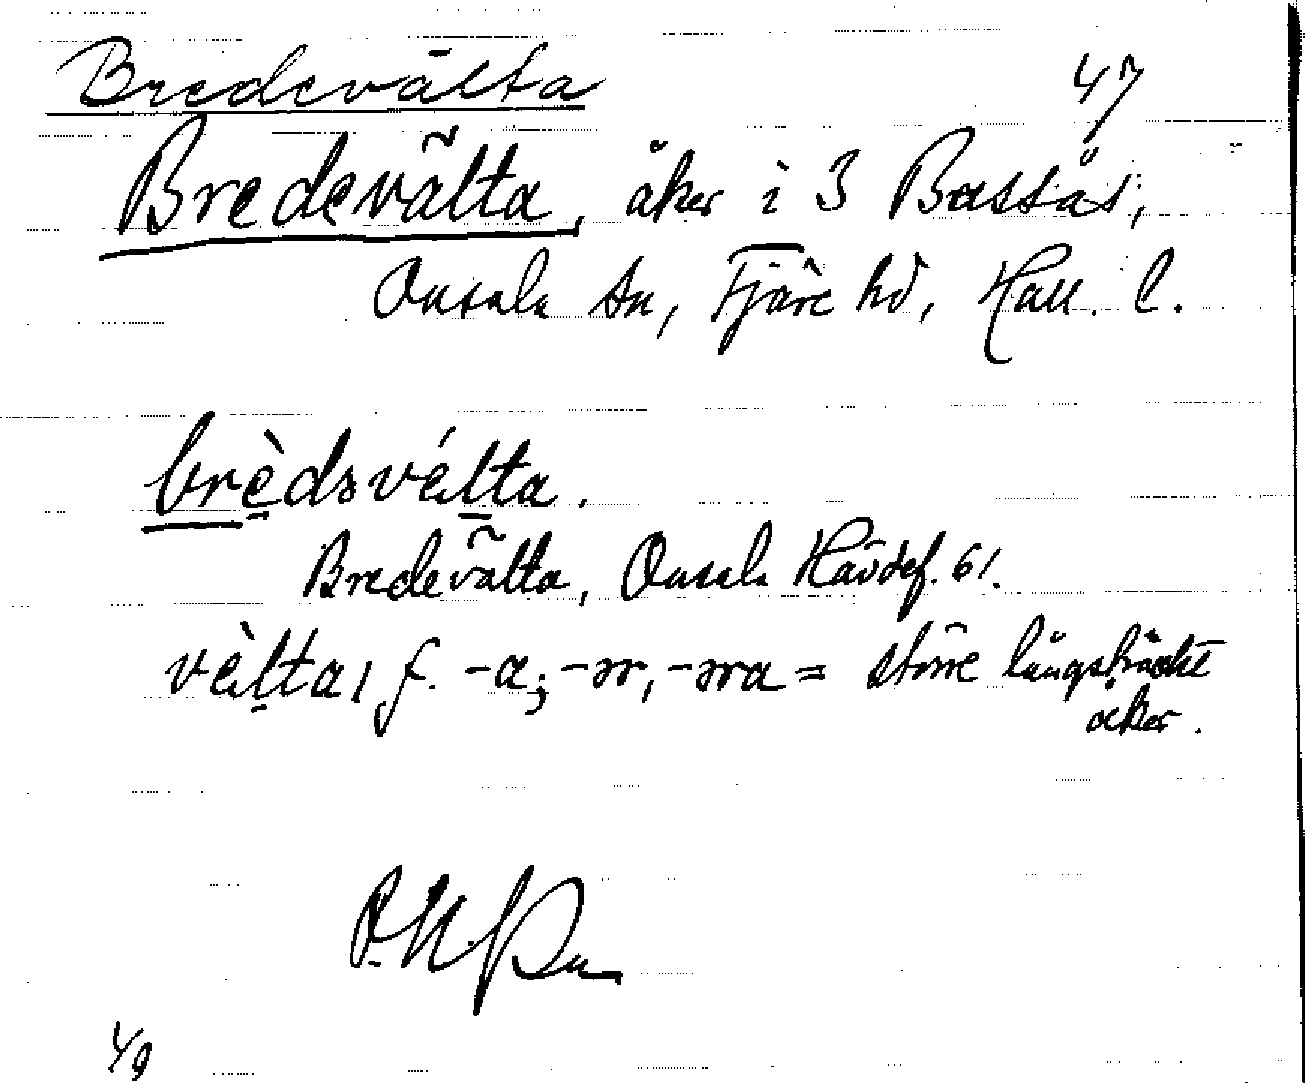 Bredevälta 47
Bredevälta, åker i 3 Bassås,
Onsala sn, Fjäre hd, Hall. l.
brèdəvélta.
Bredevälta, Onsala Hävdef. 61.
vèlta, f. -a; -ər, -əra = större långsträckt
åker.
1/9